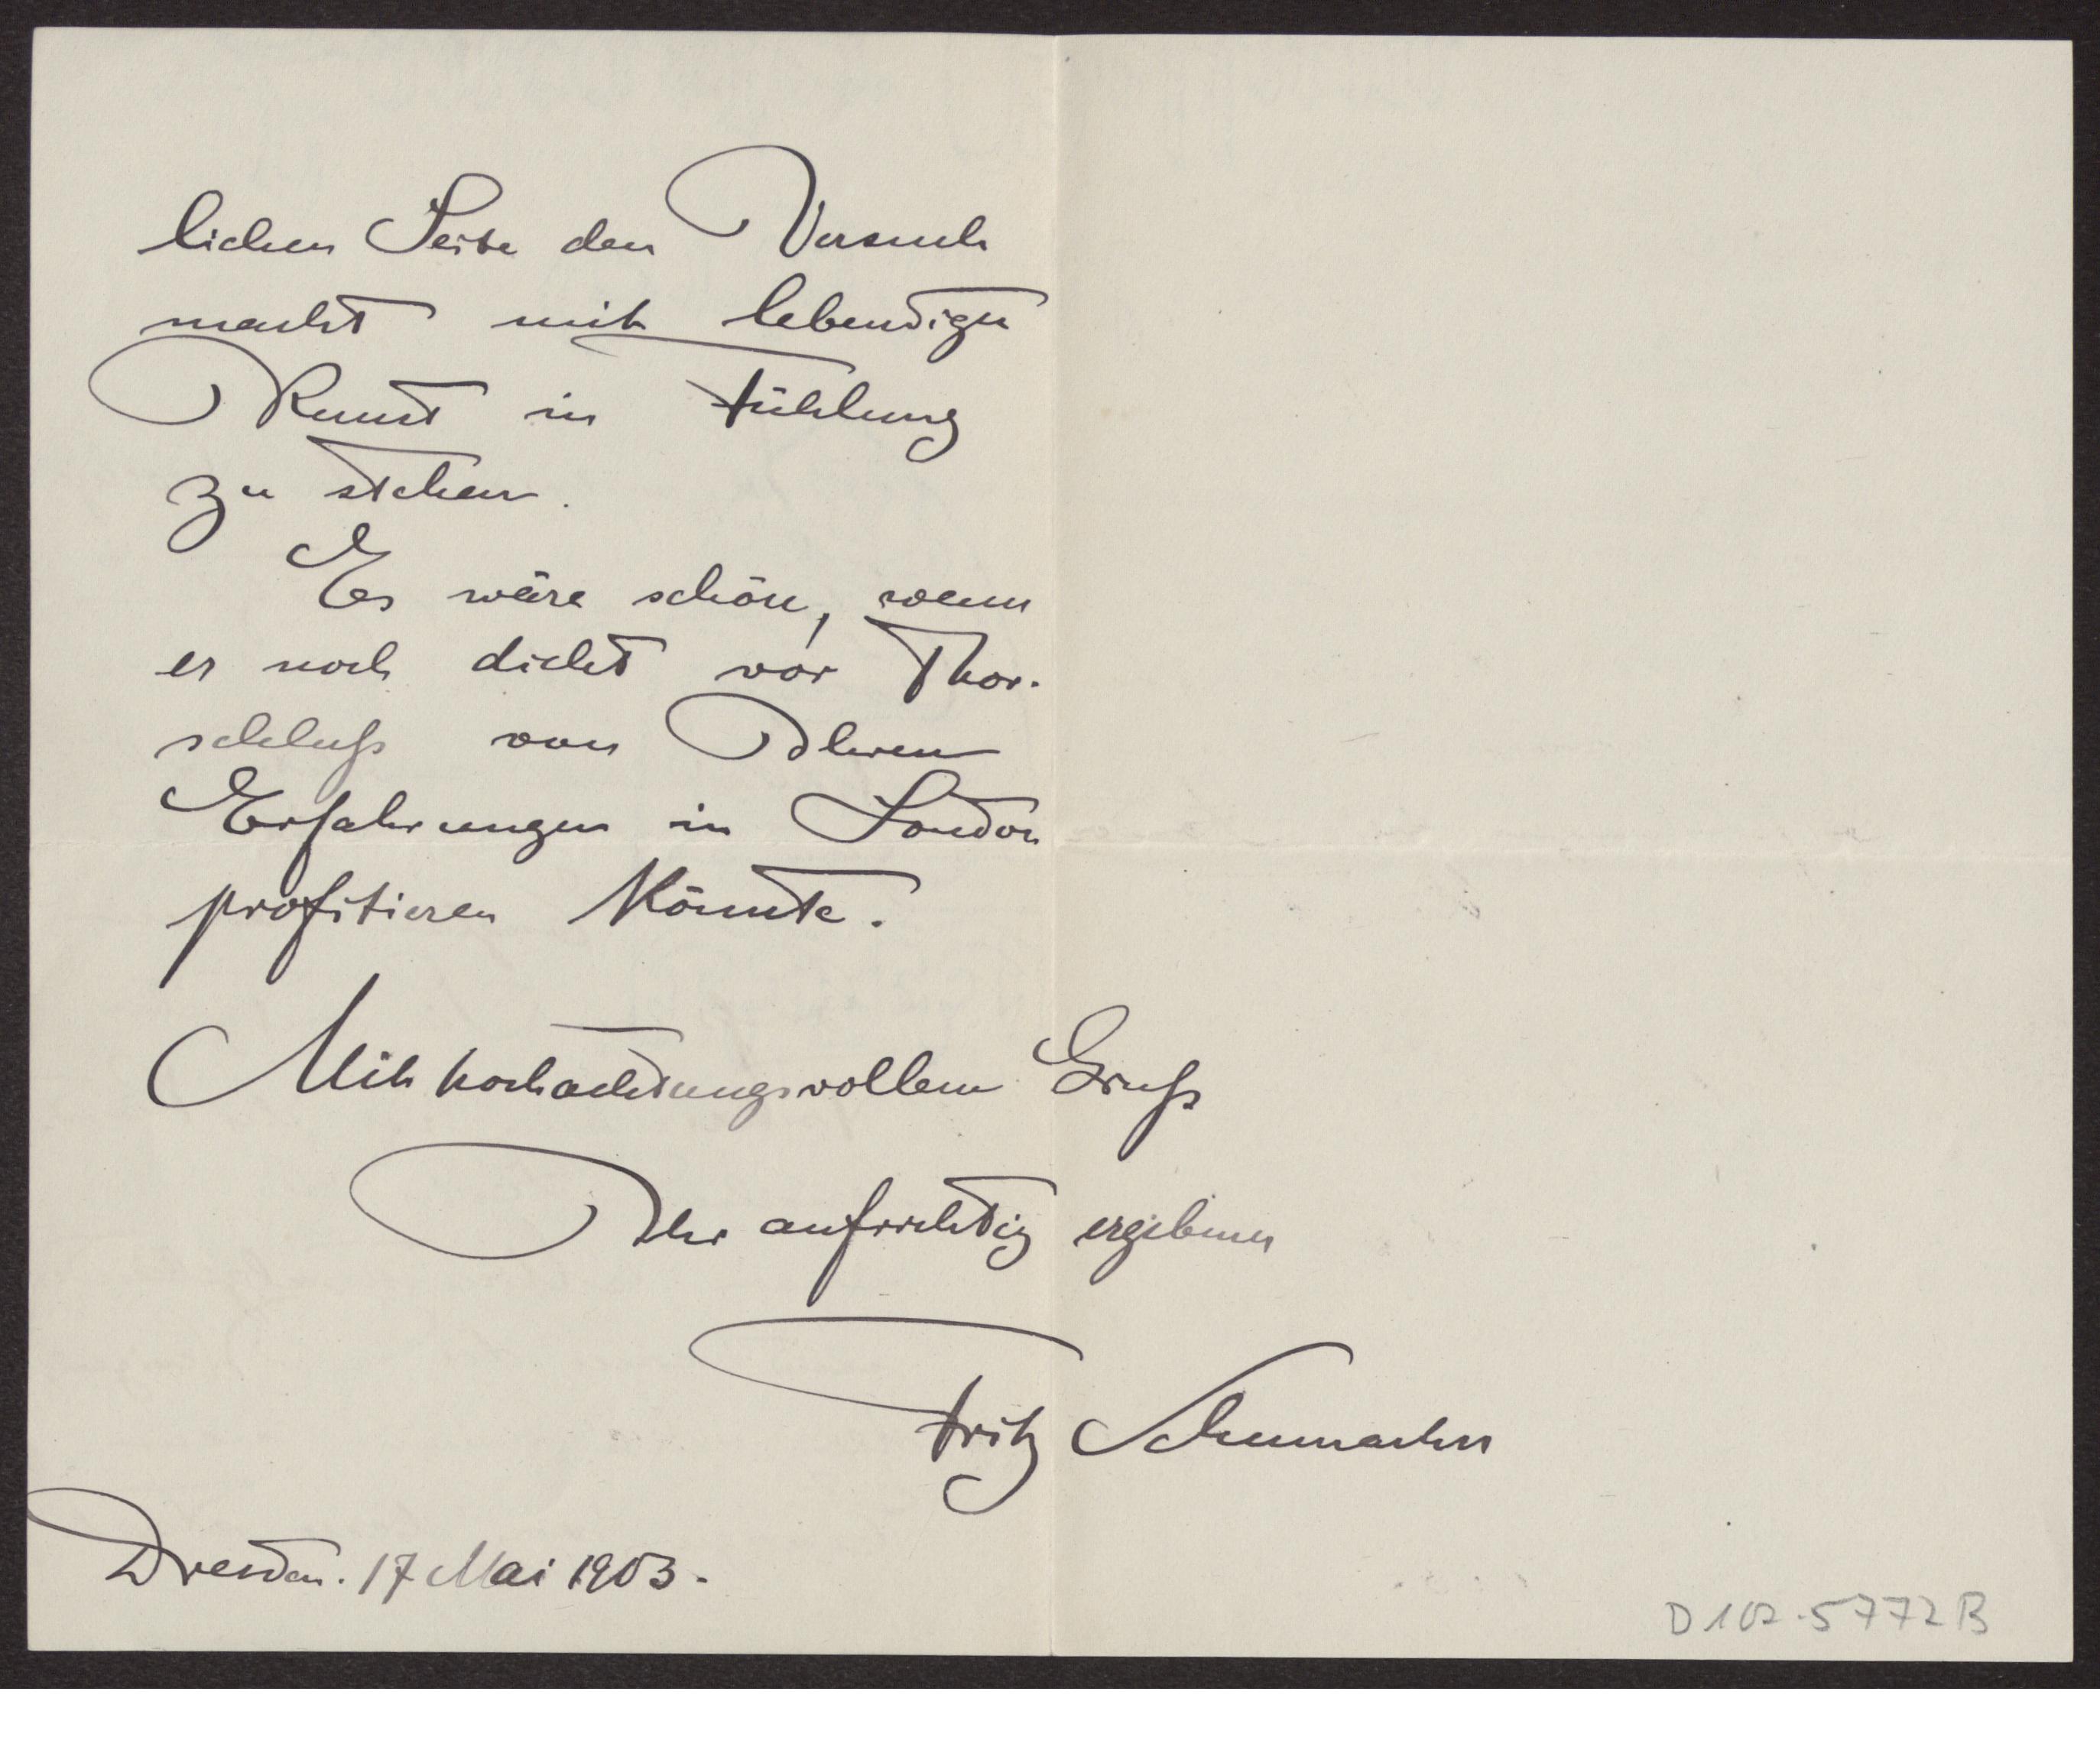 lichen Seite den Versuch
macht mit lebendiger
Kunst in Fühlung
zu stehen.
Es wäre schön, wenn
er noch dicht vor Thor-
schluß von Ihren
Erfahrungen in London
profitieren könnte.
Mit hochachtungsvollem Gruß
Ihr aufrichtig ergebener
Fritz Schumacher
Dresden. 17 Mai 1903.
D 102.5772 B